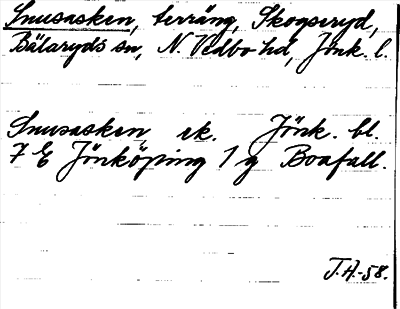 Snusasken, terräng, Skogseryd,
Bälaryds sn, N. Vedbo hd, Jönk. l.
Snusasken ek. Jönk. bl.
7 E Jönköping 1 g Boafall.
J.H.-58.